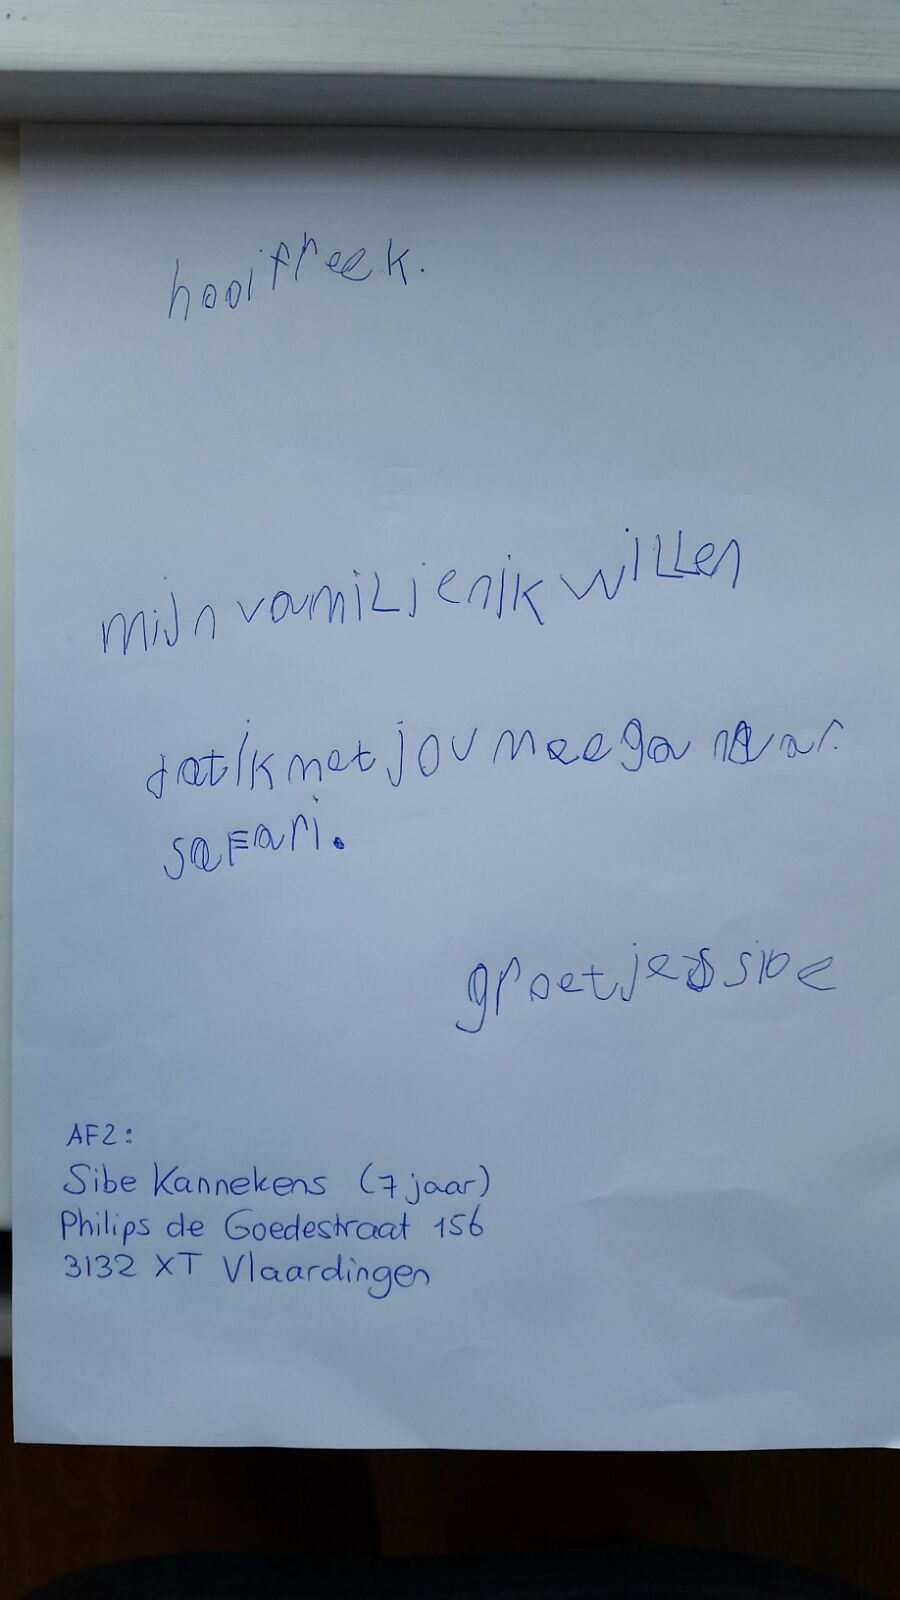 hooi freek.
mijn vamiljen ik willen
dat ik met jou mee ga naar
safari.
groetjes sibe
AFZ:
Sibe Kannekens (7 jaar)
Philips de Goedestraat 156
3132 XT Vlaardingen